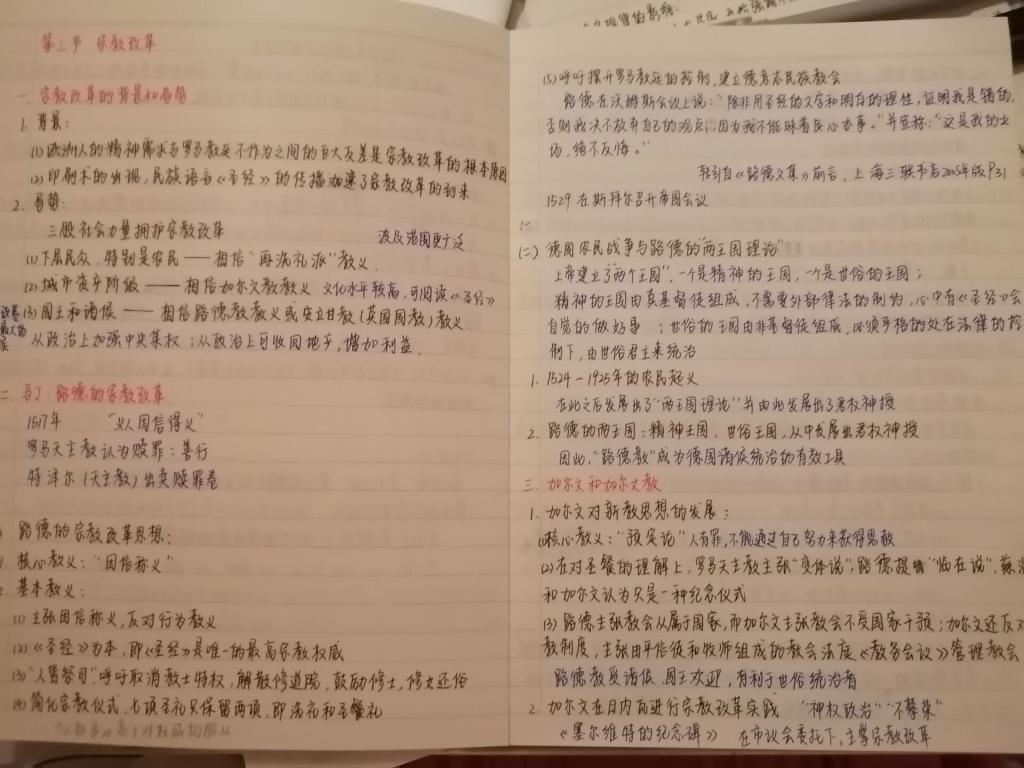 第三节 宗教改革
一. 宗教改革的背景和局势
1. 背景:
(1) 欧洲人的精神需求与罗马教廷不作为之间的巨大反差是宗教改革的根本原因
(2) 印刷术的出现,民族语言《圣经》的传播加速了宗教改革的到来
2. 局势:
三股社会力量拥护宗教改革 波及范围更广泛
(1) 下层民众、特别是农民 —— 相信“再洗礼派”教义.
(2) 城市资产阶级 —— 相信加尔文教教义 文化水平较高,可阅读《圣经》
(3) 国王和诸侯 —— 相信路德教教义或安立甘教(英国国教)教义.
从政治上加强中央集权;从政治上可收回地产,增加利益.
二 马丁·路德的宗教改革
1517年 “义人因信得义”
罗马天主教认为赎罪:善行
特泽尔(天主教)出卖赎罪卷
路德的宗教改革思想:
1. 核心教义:“因信称义”
2. 基本教义:
(1) 主张因信称义,反对行为教义
(2) 《圣经》为本,即《圣经》是唯一的最高宗教权威
(3) “人皆祭司”.呼吁取消教士特权,解散修道院,鼓励修士,修女还俗
(4) 简化宗教仪式,七项圣礼只保留两项,即洗礼和圣餐礼
(5) 呼吁摆开罗马教廷的控制,建立德意志民族教会
路德在沃姆斯会议上说:“除非用圣经的文字和明白的理性,证明我是错的,
否则我决不放弃自己的观点,因为我不能昧着良心办事。”并宣称:“这是我的立
场,绝不反悔。”
转引自《路德文集》前言,上海三联书店2005年版P31
1529 在斯拜尔召开帝国会议
(二
(二) 德国农民战争与路德的“两王国理论”
上帝建立了两个王国”,一个是精神的王国,一个是世俗的王国;
精神的王国由真基督徒组成,不需要外部律法的制约,心中有《圣经》会
自觉的做好事 ;世俗的王国由非基督徒组成,必须严格的处在法律的控
制下,由世俗君主来统治
1. 1524-1925年的农民起义
在此之后发展出了“两王国理论”并由此发展出了君权神授
2. 路德的两王国:精神王国,世俗王国,从中发展出君权神授
因此,“路德教”成为德国诸侯统治的有效工具
三. 加尔文和加尔文教
1. 加尔文对新教思想的发展:
(1)核心教义:“预定论”人有罪,不能通过自己努力来获得恩救
(2) 在对圣餐的理解上,罗马天主教主张“变体说”,路德提“临在说”,
和加尔文认为只是一种纪念仪式
(3) 路德主张教会从属于国家,而加尔文主张教会不受国家干预;加尔文还反对
教制度,主张由平信徒和牧师组成的教会法庭《教务会议》管理教会
路德教受诸侯、国王欢迎,有利于世俗统治者
2. 加尔文在日内瓦进行宗教改革实践 “神权政治” “不禁荣”
《塞尔维特的纪念碑》 在市议会委托下,主导宗教改革